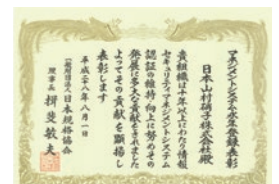 マネジメントシステム永年登録表彰
日本山村硝子株式会社殿
貴組織は十年以上にわたり情報
セキュリティマネジメントシステム
認証の維持・向上に努めその
発展に多大な貢献をされました
よってその貢献を顕揚し
表彰します
平成二十八年八月一日
一般財団法人日本規格協会
理事長 揖斐敏夫